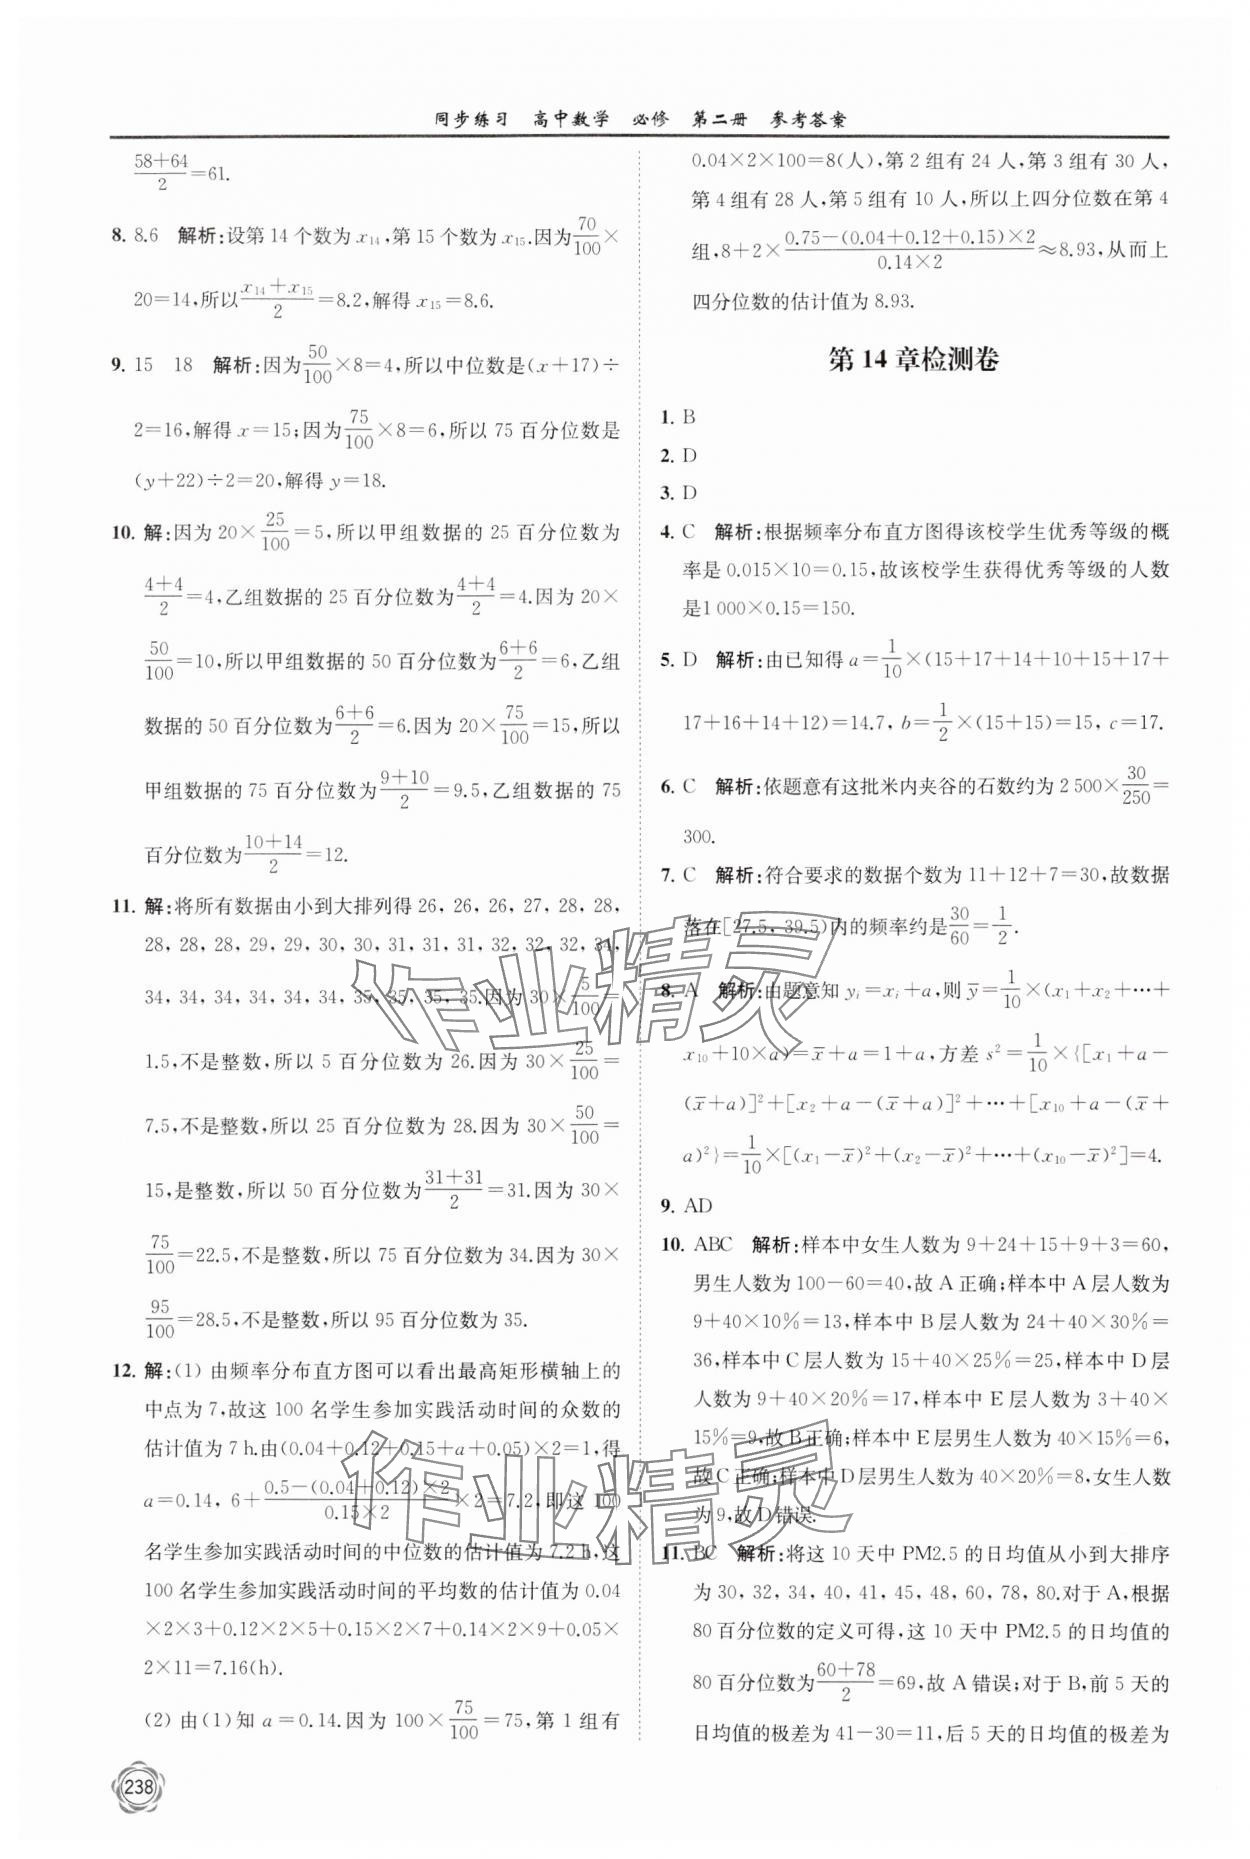 同步练习 高中数学 必修 第二册 参考答案
(58+64)/2=61.
8. 8.6 解析:设第 14 个数为 x₁₄,第 15 个数为 x₁₅.因为70/100×
20=14,所以(x₁₄+x₁₅)/2=8.2,解得 x₁₅=8.6.
9. 15 18 解析:因为50/100×8=4,所以中位数是(x+17)÷
2=16,解得 x=15;因为75/100×8=6,所以 75 百分位数是
(y+22)÷2=20,解得 y=18.
10. 解:因为 20×25/100=5,所以甲组数据的 25 百分位数为
(4+4)/2=4,乙组数据的 25 百分位数为(4+4)/2=4.因为 20×
50/100=10,所以甲组数据的 50 百分位数为(6+6)/2=6,乙组
数据的 50 百分位数为(6+6)/2=6.因为 20×75/100=15,所以
甲组数据的 75 百分位数为(9+10)/2=9.5,乙组数据的 75
百分位数为(10+14)/2=12.
11. 解:将所有数据由小到大排列得 26, 26, 26, 27, 28, 28,
28, 28, 28, 29, 29, 30, 30, 31, 31, 31, 32, 32, 32, 34,
34, 34, 34, 34, 34, 34, 35, 35, 35, 35.因为 30×5/100=
1.5,不是整数,所以 5 百分位数为 26.因为 30×25/100=
7.5,不是整数,所以 25 百分位数为 28.因为 30×50/100=
15,是整数,所以 50 百分位数为(31+31)/2=31.因为 30×
75/100=22.5,不是整数,所以 75 百分位数为 34.因为 30×
95/100=28.5,不是整数,所以 95 百分位数为 35.
12. 解:(1) 由频率分布直方图可以看出最高矩形横轴上的
中点为 7,故这 100 名学生参加实践活动时间的众数的
估计值为 7 h.由(0.04+0.12+0.15+a+0.05)×2=1,得
a=0.14, 6+(0.5-(0.04+0.12)×2)/(0.15×2)×2=7.2,即这 100
名学生参加实践活动时间的中位数的估计值为 7.2 h,这
100 名学生参加实践活动时间的平均数的估计值为 0.04
×2×3+0.12×2×5+0.15×2×7+0.14×2×9+0.05×
2×11=7.16(h).
(2) 由(1)知 a=0.14.因为 100×75/100=75,第 1 组有
238
0.04×2×100=8(人),第 2 组有 24 人,第 3 组有 30 人,
第 4 组有 28 人,第 5 组有 10 人,所以上四分位数在第 4
组,8+2×(0.75-(0.04+0.12+0.15)×2)/(0.14×2)≈8.93,从而上
四分位数的估计值为 8.93.
第 14 章检测卷
1. B
2. D
3. D
4. C 解析:根据频率分布直方图得该校学生优秀等级的概
率是 0.015×10=0.15,故该校学生获得优秀等级的人数
是1 000×0.15=150.
5. D 解析:由已知得 a=1/10×(15+17+14+10+15+17+
17+16+14+12)=14.7, b=1/2×(15+15)=15, c=17.
6. C 解析:依题意有这批米内夹谷的石数约为 2 500×30/250=
300.
7. C 解析:符合要求的数据个数为 11+12+7=30,故数据
落在[27.5, 39.5)内的频率约是30/60=1/2.
8. A 解析:由题意知 yᵢ=xᵢ+a,则 y̅=1/10×(x₁+x₂+…+
x₁₀+10×a)=x̅+a=1+a,方差 s²=1/10×{[x₁+a-
(x̅+a)]²+[x₂+a-(x̅+a)]²+…+[x₁₀+a-(x̅+
a)²}=1/10×[(x₁-x̅)²+(x₂-x̅)²+…+(x₁₀-x̅)²]=4.
9. AD
10. ABC 解析:样本中女生人数为 9+24+15+9+3=60,
男生人数为 100-60=40,故 A 正确;样本中 A 层人数为
9+40×10%=13,样本中 B 层人数为 24+40×30%=
36,样本中 C 层人数为 15+40×25%=25,样本中 D 层
人数为 9+40×20%=17,样本中 E 层人数为 3+40×
15%=9,故 B 正确;样本中 E 层男生人数为 40×15%=6,
故 C 正确;样本中 D 层男生人数为 40×20%=8,女生人数
为 9,故 D 错误.
11. BC 解析:将这 10 天中 PM2.5 的日均值从小到大排序
为 30, 32, 34, 40, 41, 45, 48, 60, 78, 80.对于 A,根据
80 百分位数的定义可得,这 10 天中 PM2.5 的日均值的
80 百分位数为(60+78)/2=69,故 A 错误;对于 B,前 5 天的
日均值的极差为 41-30=11,后 5 天的日均值的极差为
作业精灵
作业精灵